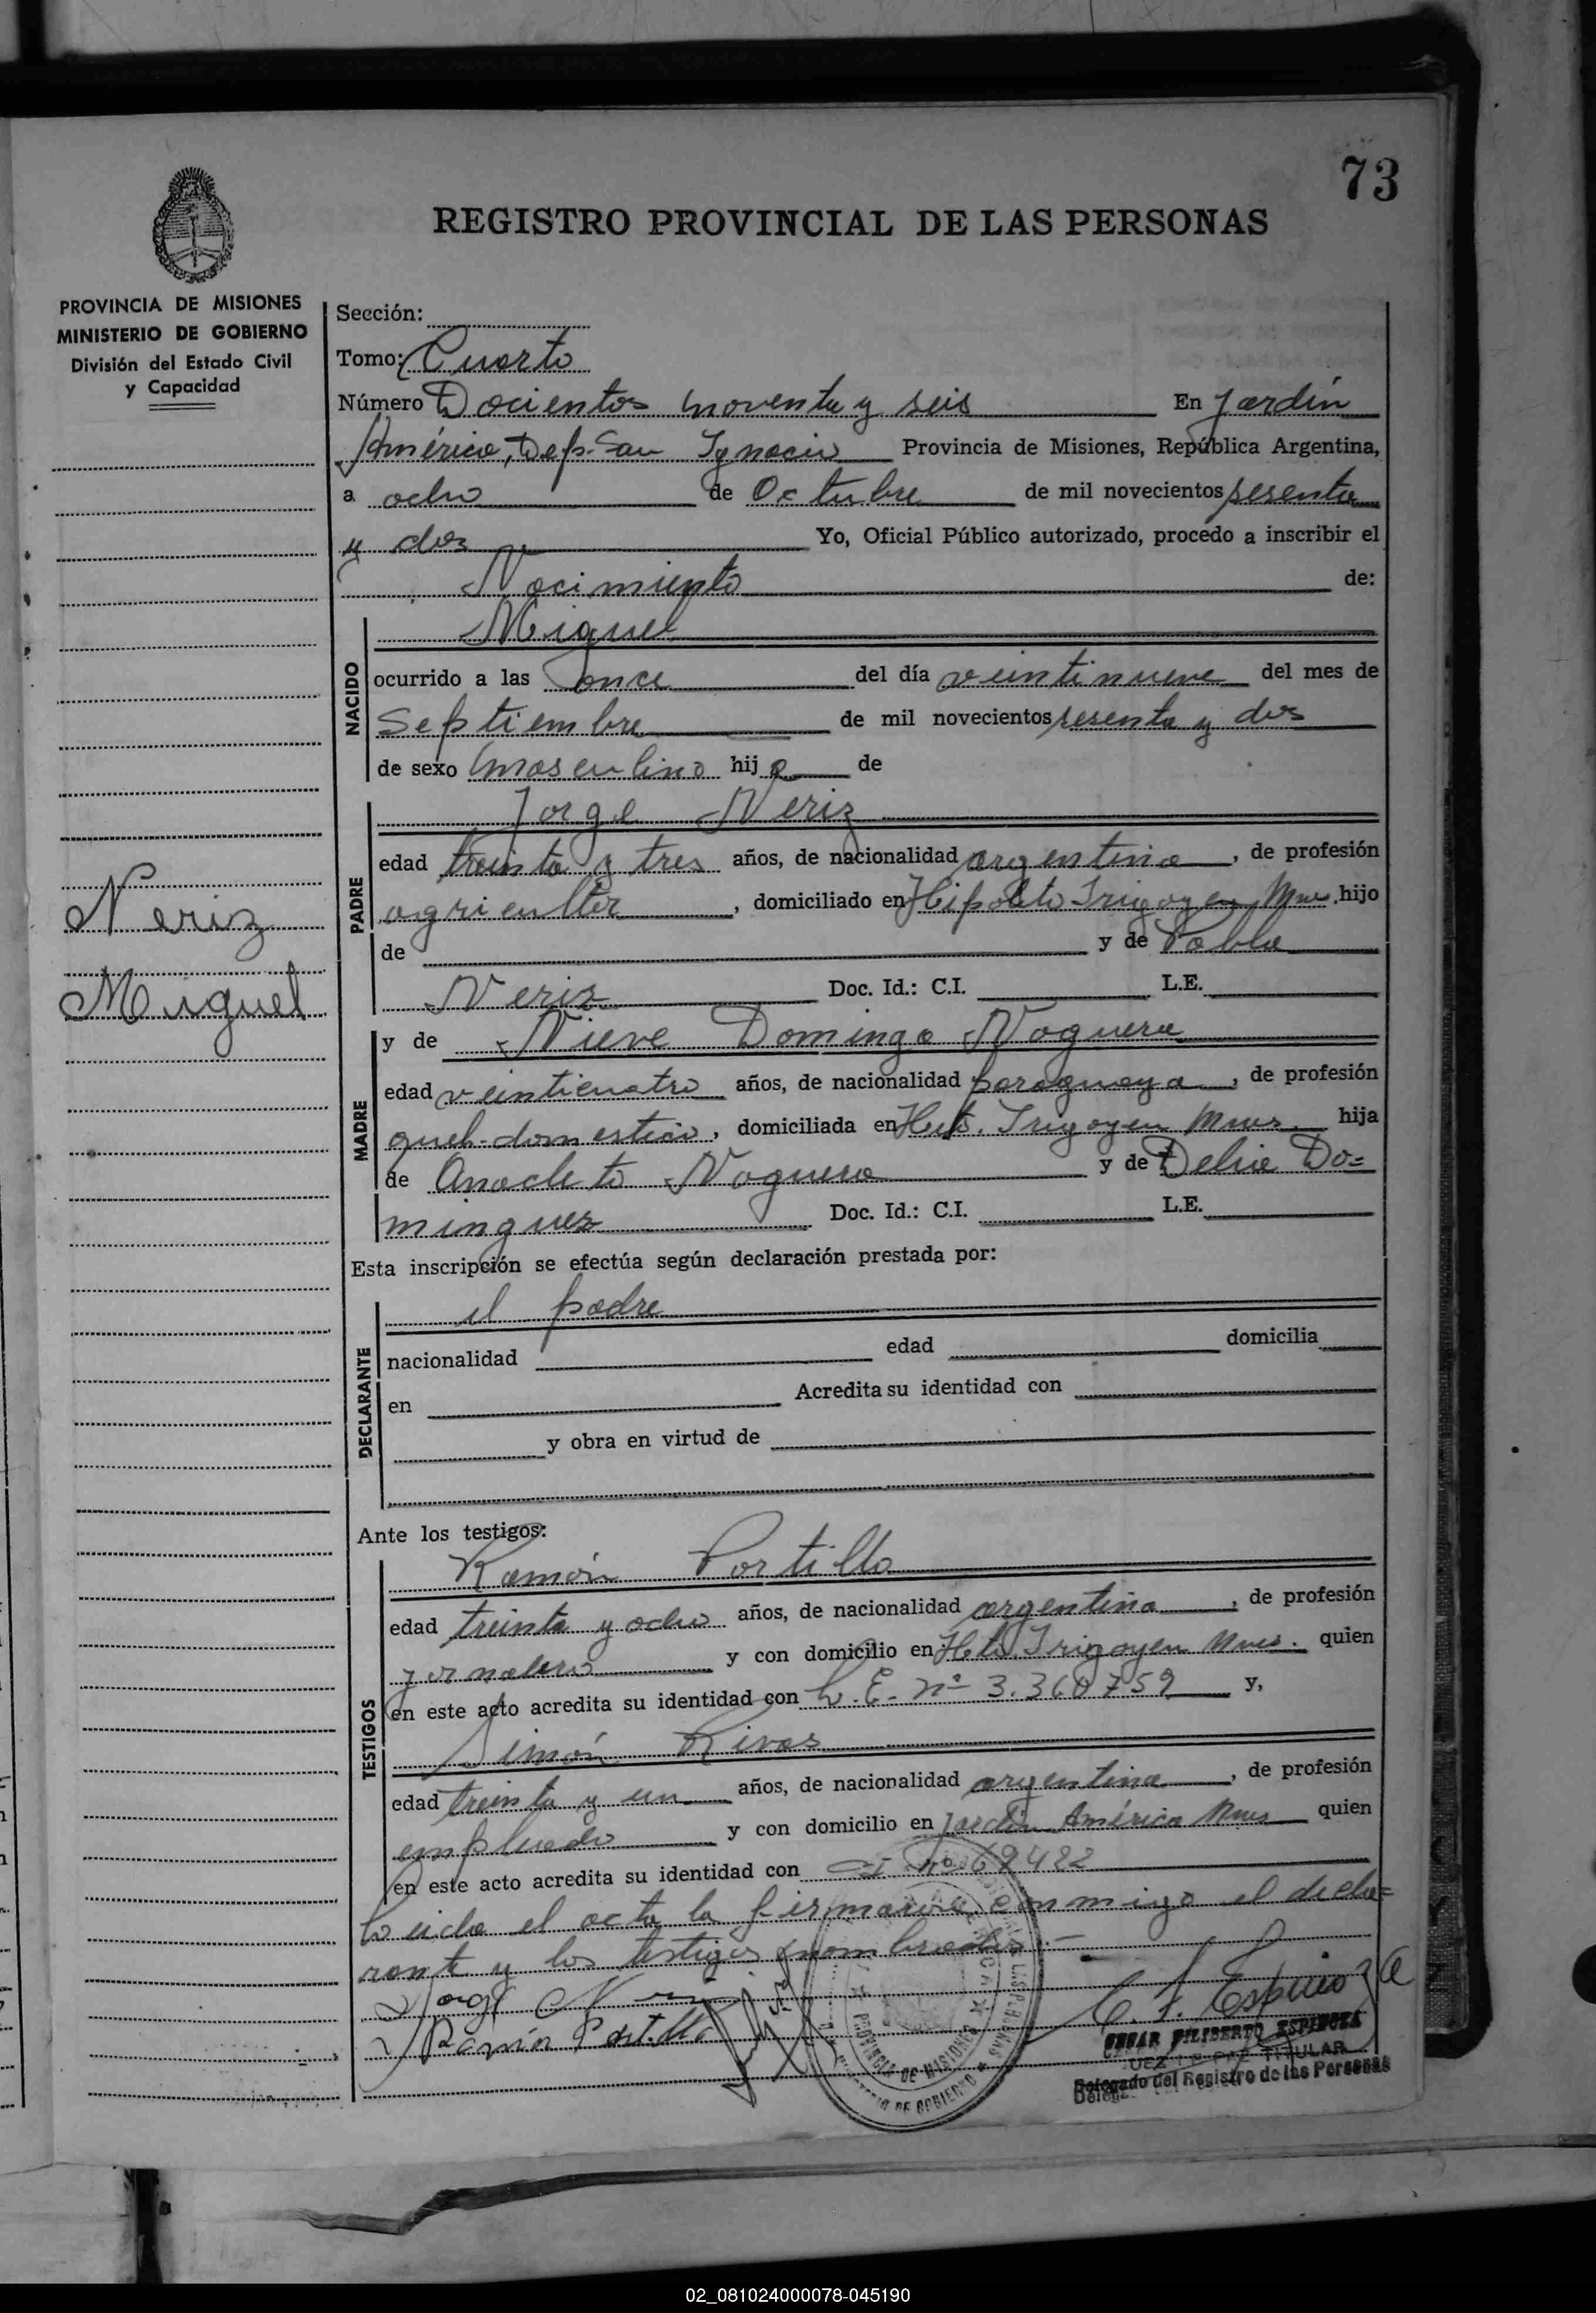 73
REGISTRO PROVINCIAL DE LAS PERSONAS
PROVINCIA DE MISIONES
MINISTERIO DE GOBIERNO
División del Estado Civil
y Capacidad
Neriz
Miguel
Sección:
Tomo: Cuarto
Número Docientos noventa y seis En Jardín
América, Dep. San Ignacio Provincia de Misiones, República Argentina,
a ocho de Octubre de mil novecientos sesenta
y dos Yo, Oficial Público autorizado, procedo a inscribir el
Nacimiento de:
NACIDO
Miguel
ocurrido a las once del día veintinueve del mes de
Septiembre de mil novecientos sesenta y dos
de sexo masculino hijo de
PADRE
Jorge Neriz
edad treinta y tres años, de nacionalidad argentina, de profesión
agricultor, domiciliado en Hipolito Irigoyen Mnes. hijo
de y de Pabla
Neris Doc. Id.: C.I. L.E.
MADRE
y de Nieve Dominga Noguera
edad veinticuatro años, de nacionalidad paraguaya, de profesión
queh. domestico, domiciliada en Hto. Irigoyen Mnes. hija
de Anacleto Noguera y de Delia Do=
minguez Doc. Id.: C.I. L.E.
Esta inscripción se efectúa según declaración prestada por:
DECLARANTE
el padre
nacionalidad edad domicilia
en Acredita su identidad con
y obra en virtud de
Ante los testigos:
TESTIGOS
Ramón Portillo
edad treinta y ocho años, de nacionalidad argentina, de profesión
jornalero y con domicilio en Hto. Irigoyen Mnes. quien
en este acto acredita su identidad con L.E. nº 3.360759 y,
Simón Rivas
edad treinta y un años, de nacionalidad argentina, de profesión
empleado y con domicilio en Jardín América Mnes quien
en este acto acredita su identidad con CI nº 69422
Leida el acta la firman conmigo el decla=
rante y los testigos nombrados.-
Jorge
Ramón Portillo
C. F. Espinoza
CESAR FILIBERTO ESPINOZA
JUEZ DE PAZ TITULAR
Delegado del Registro de las Personas
PROVINCIA DE MISIONES
MINISTERIO DE GOBIERNO
02_081024000078-045190